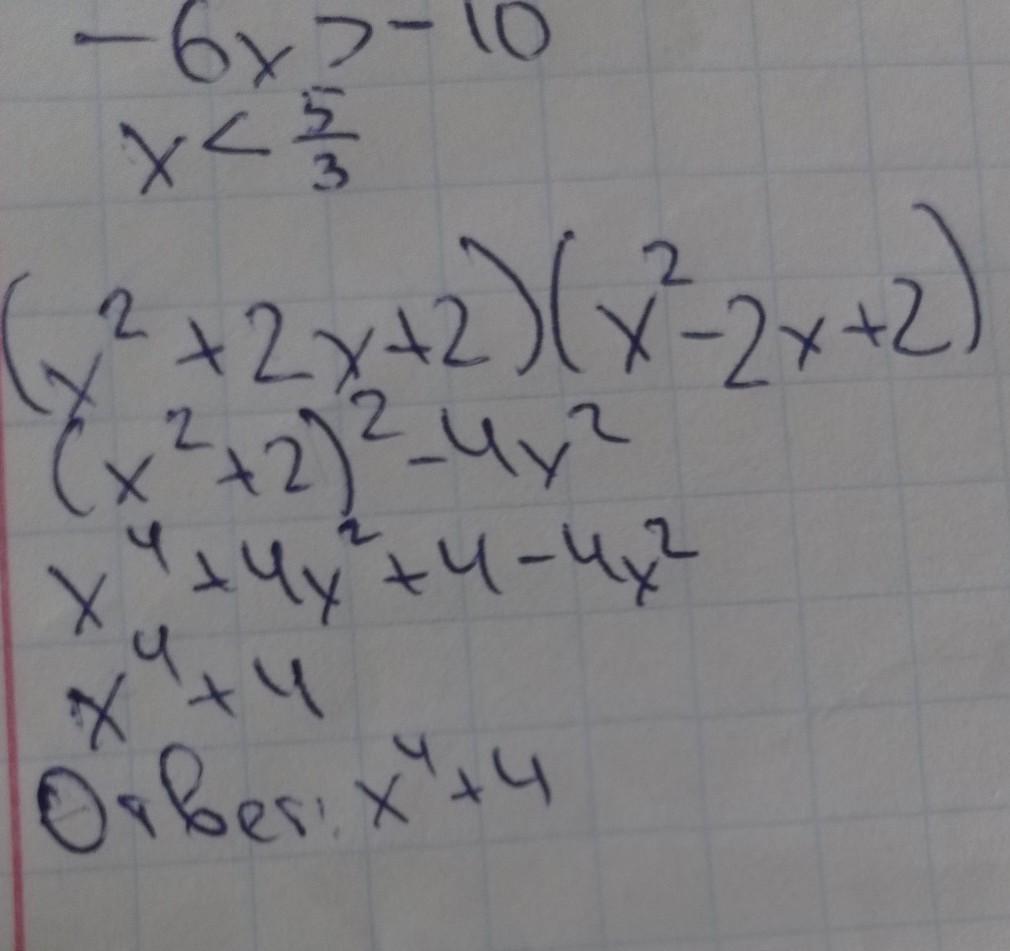 -6x > -10
x < 5/3
(x² + 2x + 2)(x² - 2x + 2)
(x² + 2)² - 4x²
x⁴ + 4x² + 4 - 4x²
x⁴ + 4
Ответ: x⁴ + 4